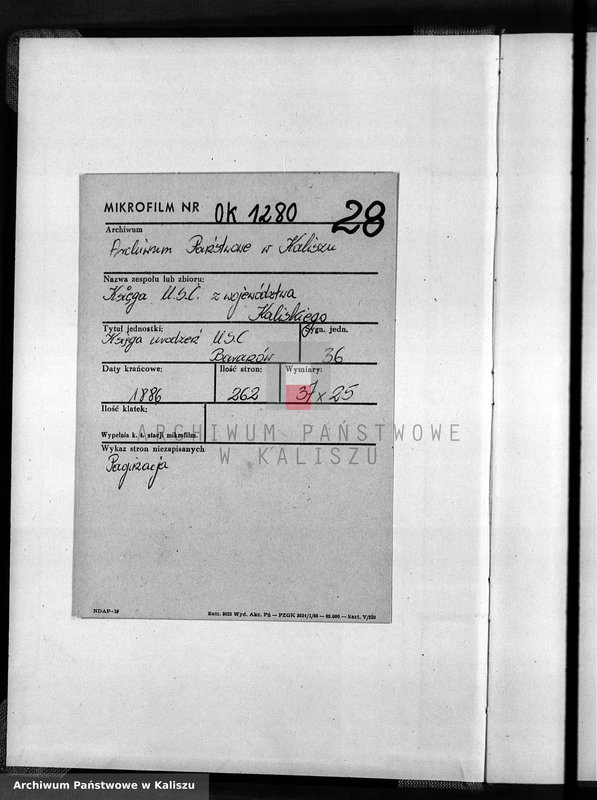 MIKROFILM NR OK 1280 28
Archiwum
Archiwum Państwowe w Kaliszu
Nazwa zespołu lub zbioru:
Księga U.S.C. z województwa
Kaliskiego
Tytuł jednostki: Sygn. jedn.
Księga urodzeń USC
Baranów 36
Daty krańcowe: Ilość stron: Wymiary:
1886 262 37 x 25
Ilość klatek:
ARCHIWUM PAŃSTWOWE
Wypełnia k. t. stacji mikrofilm.
W KALISZU
Wykaz stron niezapisanych
Paginacja
NDAP-10 Zam. 2625 Wyd. Akc. Pń — PZGK kart. V/220
Archiwum Państwowe w Kaliszu